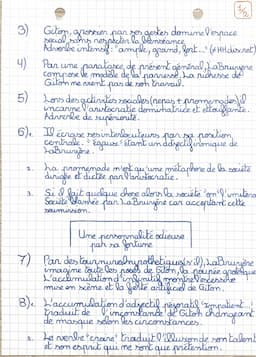 1/2
3) Giton, grossier par ses gestes domine l'espace
social sans respecter la bienséance
Adverbe intensif: "ample, grand, fort..."
4) Par une parataxe de présent général, La Bruyère
compose le modèle de la paresse. La richesse de
Giton ne vient pas de son travail.
5) Lors des activités sociales (repas + promenades) il
incarne l'aristocratie dominatrice et étouffante.
Adverbe de supériorité.
6) 1. Il écrase ses interlocuteurs par sa position
centrale. étant un adjectif ironique de
La Bruyère.
2. La promenade n'est qu'une métaphore de la société
dirigée et dictée par l'aristocratie.
3. Si il fait quelque chose alors la société "on" l'imitera
Société blamée par La Bruyère car acceptant cette
soumission.
Une personnalité odieuse
par sa fortune
7) Par des tournures hypothétiques (s'il), La Bruyère
imagine toute les poses de Giton, la poupée grotesque
L'accumulation d'infinitif montre l'excessive
mise en scène et la fierté artificiel de Giton.
8) 1. L'accumulation d'adjectif péjoratif "impatient..."
traduit de l'inconstance de Giton changeant
de masque selon les circonstances.
2. Le verbe "croire" traduit l'illusion de son talent
et son esprit qui ne sont que prétention.